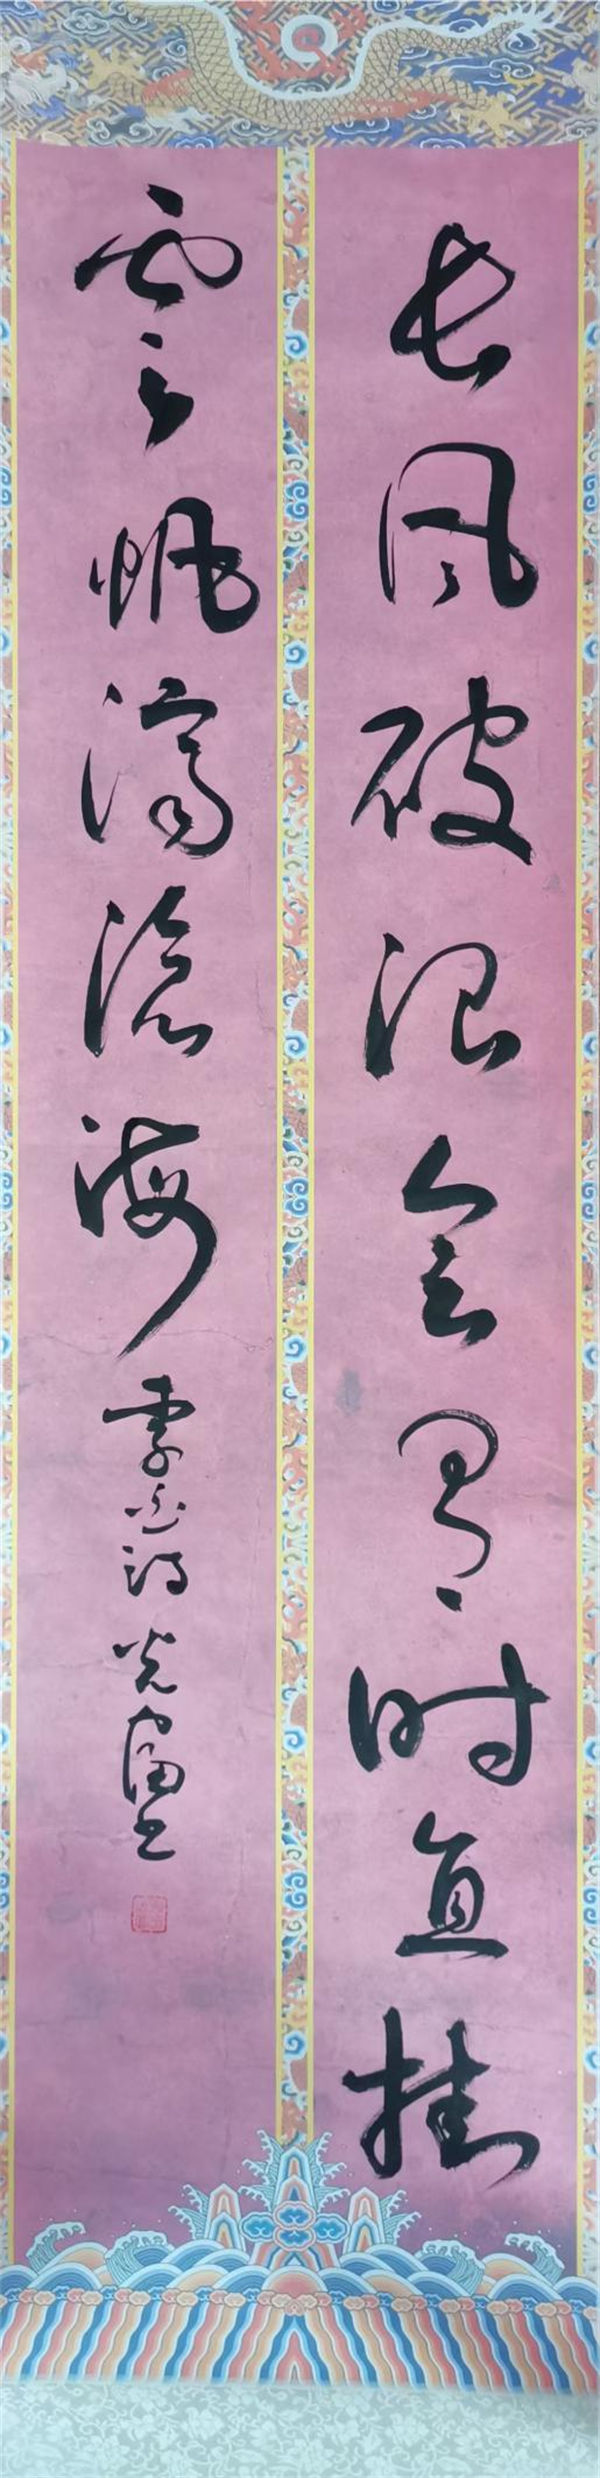 长风破浪会有时直挂
云帆济沧海李白诗光